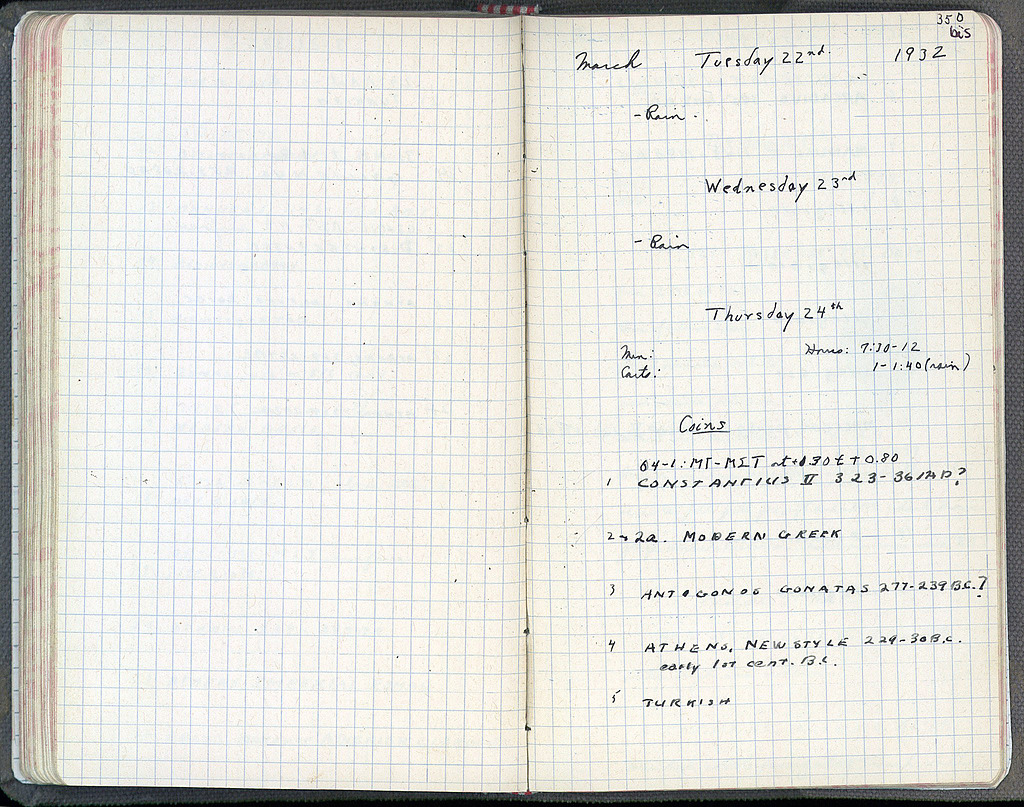 350
bis
March Tuesday 22nd. 1932
- Rain -
Wednesday 23rd
- Rain
Thursday 24th
Men: Hours: 7:30-12
Carts: 1-1:40 (rain)
Coins
04-1: ΜΓ-ΜΣΤ at +0.80
1 CONSTANTIUS II 323-361 AD?
2 + 2a. MODERN GREEK
3 ANTIGONOS GONATAS 277-239 B.C.?
4 ATHENS, NEW STYLE 229-30 B.C.
early 1st cent. B.C.
5 TURKISH